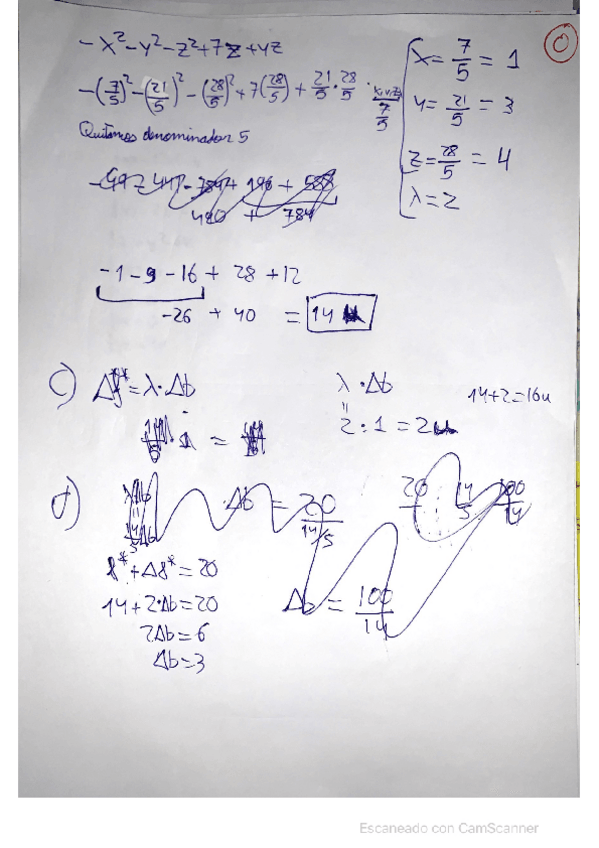 -x²-y²-z²+7z+yz
-(7/5)²-(21/5)²-(28/5)²+7(28/5)+21/5·28/5
Quitamos denominador 5
-1-9-16+28+12
-26+40=14
x=7/5=1
y=21/5=3
z=28/5=4
λ=2
0
c) Δf*=λ·Δb
λ·Δb
2·1=2u
14+2=16u
d)
·Δb=20/(14/5)
20 14/5 100/14
Δb=100/14
f*+Δf*=20
14+2·Δb=20
2Δb=6
Δb=3
Escaneado con CamScanner